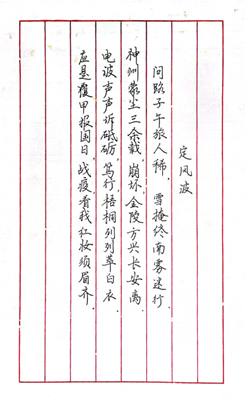 定风波
问路子午旅人稀，雪掩终南雾迷行
神州蒙尘三余载，崩坏，金陵方兴长安离
电波声声诉砥砺，笃行，梧桐列列草白衣
应是覆甲报国日，战疫，看我红妆须眉齐。